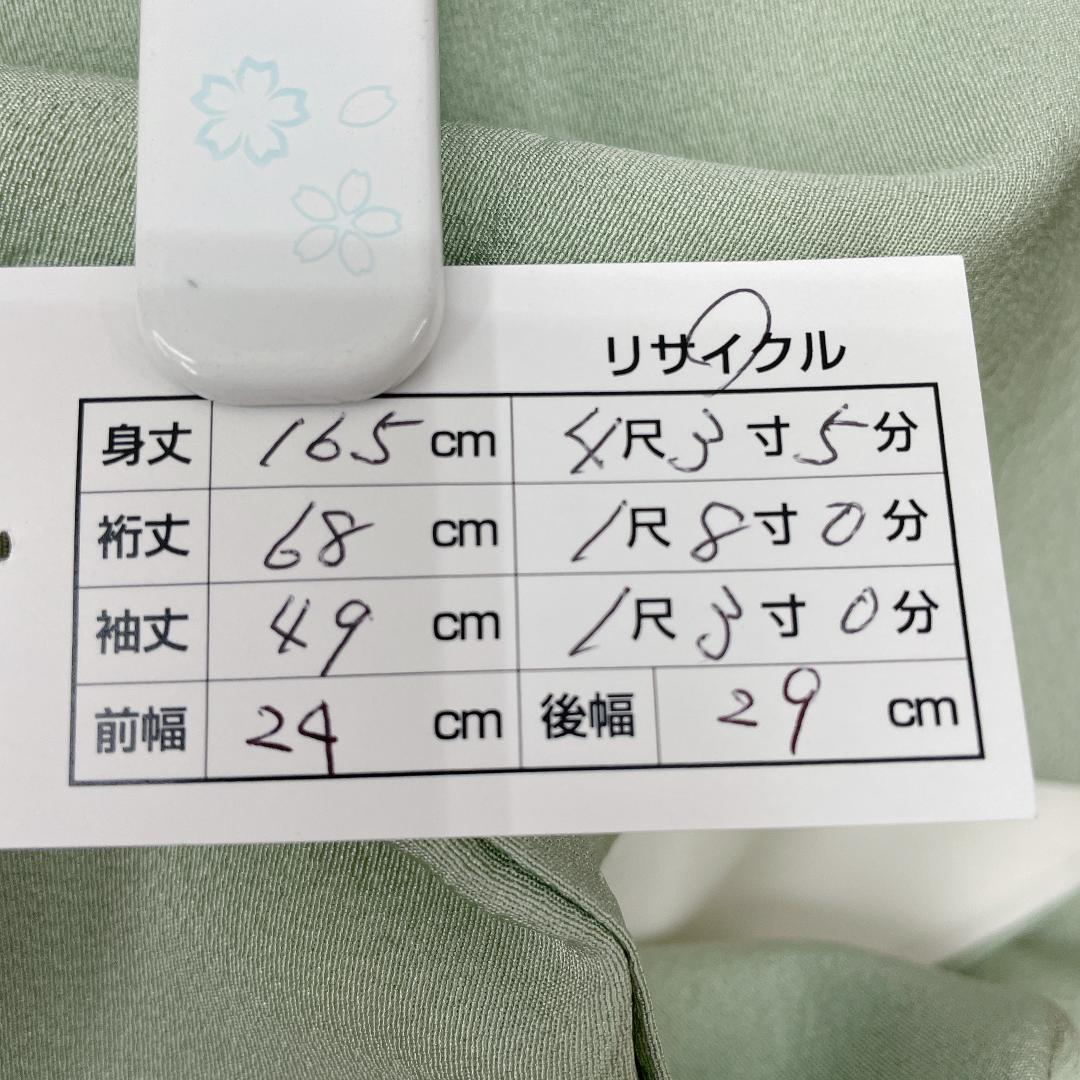 リサイクル
身丈 165 cm 4尺3寸5分
裄丈 68 cm 1尺8寸0分
袖丈 49 cm 1尺3寸0分
前幅 24 cm 後幅 29 cm